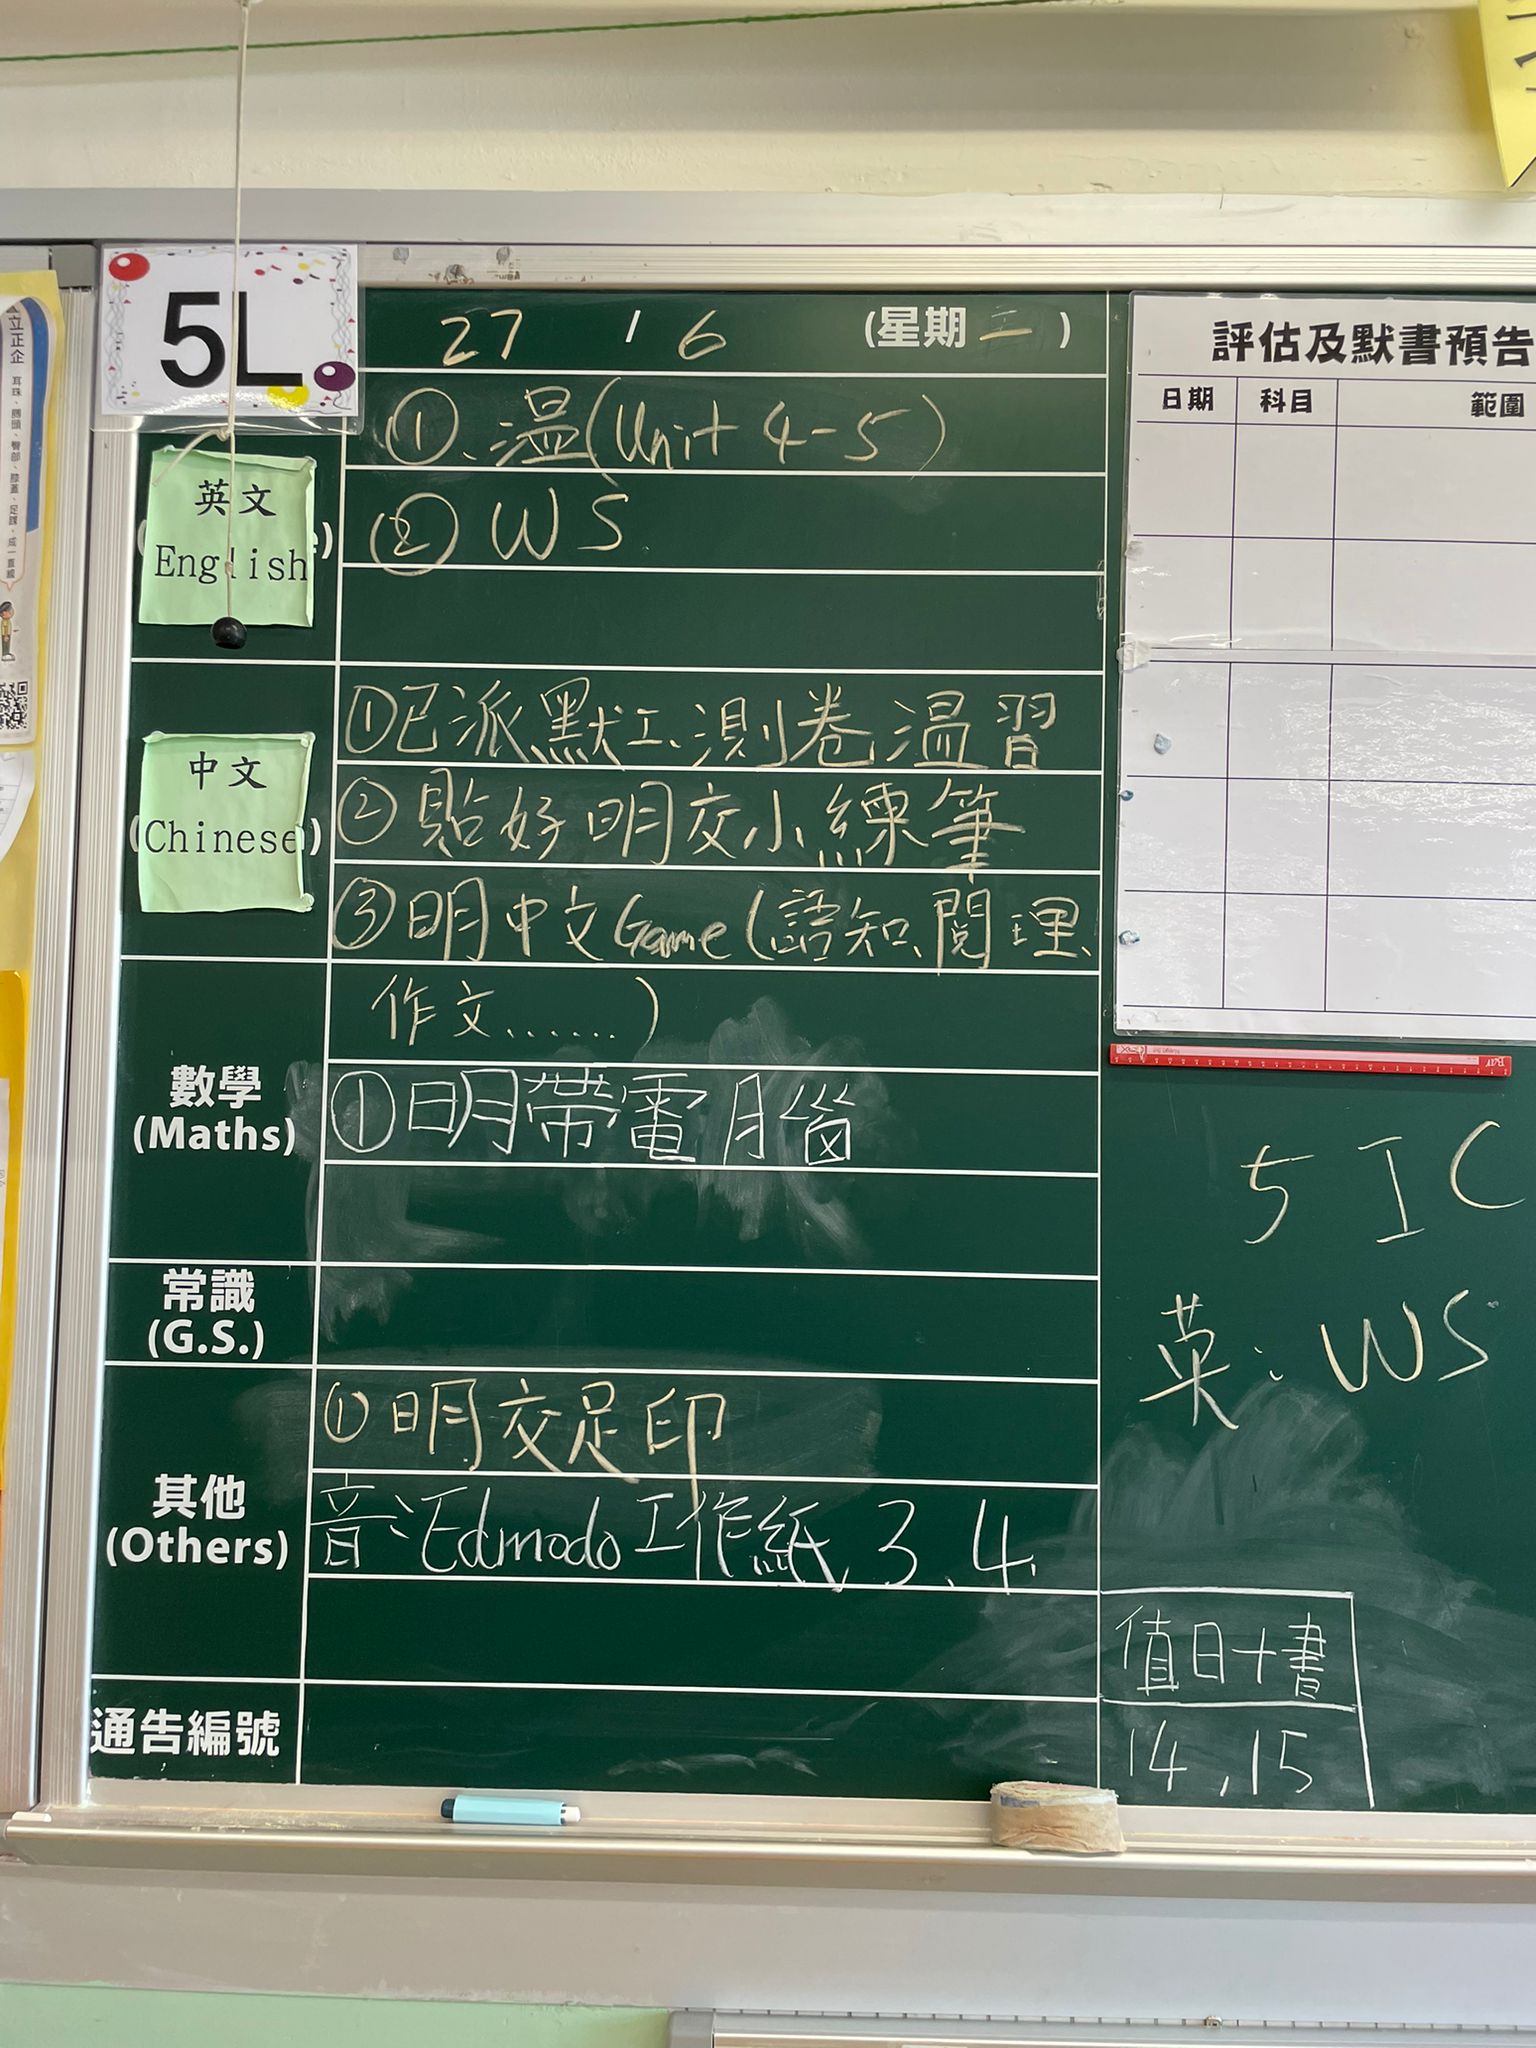 5L
27 / 6 (星期二)
英文
English
①、溫(Unit 4-5)
② WS
中文
(Chinese)
①已派默工、測卷溫習
②貼好明交小練筆
③明中文Game(語知、閱理、
作文.......)
數學
(Maths)
①明帶電腦
常識
(G.S.)
其他
(Others)
①明交足印
音:Edmodo工作紙3、4
通告編號
評估及默書預告
日期 科目 範圍
5IC
英:WS
值日+書
14,15
立正企
耳珠、膊頭、臀部、膝蓋、足踝,成一直線